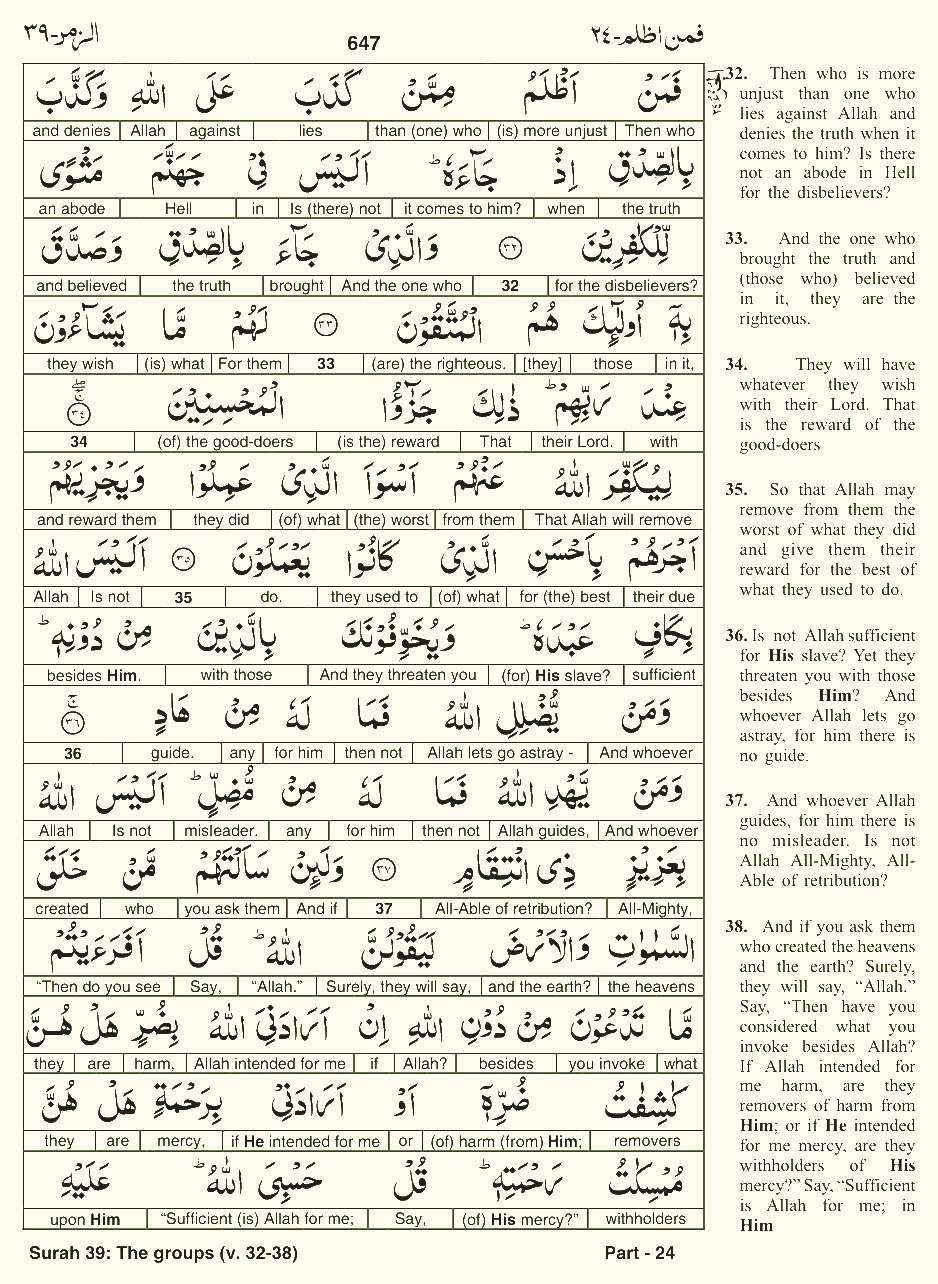 الزمر-٣٩ 647 فمن اظلم-٢٤
فَمَنْ اَظْلَمُ مِمَّنْ كَذَبَ عَلَى اللّٰهِ وَكَذَّبَ
and denies Allah against lies than (one) who (is) more unjust Then who
بِالصِّدْقِ اِذْ جَآءَهٗ ؕ اَلَيْسَ فِيْ جَهَنَّمَ مَثْوًى
an abode Hell in Is (there) not it comes to him? when the truth
لِّلْكٰفِرِيْنَ ٣٢ وَالَّذِيْ جَآءَ بِالصِّدْقِ وَصَدَّقَ
and believed the truth brought And the one who 32 for the disbelievers?
بِهٖٓ اُولٰٓئِكَ هُمُ الْمُتَّقُوْنَ ٣٣ لَهُمْ مَّا يَشَآءُوْنَ
they wish (is) what For them 33 (are) the righteous. [they] those in it,
عِنْدَ رَبِّهِمْ ؕ ذٰلِكَ جَزٰٓؤُا الْمُحْسِنِيْنَ ٣٤
34 (of) the good-doers (is the) reward That their Lord. with
لِيُكَفِّرَ اللّٰهُ عَنْهُمْ اَسْوَاَ الَّذِيْ عَمِلُوْا وَيَجْزِيَهُمْ
and reward them they did (of) what (the) worst from them That Allah will remove
اَجْرَهُمْ بِاَحْسَنِ الَّذِيْ كَانُوْا يَعْمَلُوْنَ ٣٥ اَلَيْسَ اللّٰهُ
Allah Is not 35 do. they used to (of) what for (the) best their due
بِكَافٍ عَبْدَهٗ ؕ وَيُخَوِّفُوْنَكَ بِالَّذِيْنَ مِنْ دُوْنِهٖ ؕ
besides Him. with those And they threaten you (for) His slave? sufficient
وَمَنْ يُّضْلِلِ اللّٰهُ فَمَا لَهٗ مِنْ هَادٍ ۚ ٣٦
36 guide. any for him then not Allah lets go astray - And whoever
وَمَنْ يَّهْدِ اللّٰهُ فَمَا لَهٗ مِنْ مُّضِلٍّ ؕ اَلَيْسَ اللّٰهُ
Allah Is not misleader. any for him then not Allah guides, And whoever
بِعَزِيْزٍ ذِى انْتِقَامٍ ٣٧ وَلَئِنْ سَاَلْتَهُمْ مَّنْ خَلَقَ
created who you ask them And if 37 All-Able of retribution? All-Mighty,
السَّمٰوٰتِ وَالْاَرْضَ لَيَقُوْلُنَّ اللّٰهُ ؕ قُلْ اَفَرَءَيْتُمْ
“Then do you see Say, “Allah.” Surely, they will say, and the earth? the heavens
مَّا تَدْعُوْنَ مِنْ دُوْنِ اللّٰهِ اِنْ اَرَادَنِيَ اللّٰهُ بِضُرٍّ هَلْ هُنَّ
they are harm, Allah intended for me if Allah? besides you invoke what
كٰشِفٰتُ ضُرِّهٖٓ اَوْ اَرَادَنِيْ بِرَحْمَةٍ هَلْ هُنَّ
they are mercy, if He intended for me or (of) harm (from) Him; removers
مُمْسِكٰتُ رَحْمَتِهٖ ؕ قُلْ حَسْبِيَ اللّٰهُ ؕ عَلَيْهِ
upon Him “Sufficient (is) Allah for me; Say, (of) His mercy?” withholders
32. Then who is more
unjust than one who
lies against Allah and
denies the truth when it
comes to him? Is there
not an abode in Hell
for the disbelievers?
33. And the one who
brought the truth and
(those who) believed
in it, they are the
righteous.
34. They will have
whatever they wish
with their Lord. That
is the reward of the
good-doers
35. So that Allah may
remove from them the
worst of what they did
and give them their
reward for the best of
what they used to do.
36. Is not Allah sufficient
for His slave? Yet they
threaten you with those
besides Him? And
whoever Allah lets go
astray, for him there is
no guide.
37. And whoever Allah
guides, for him there is
no misleader. Is not
Allah All-Mighty, All-
Able of retribution?
38. And if you ask them
who created the heavens
and the earth? Surely,
they will say, “Allah.”
Say, “Then have you
considered what you
invoke besides Allah?
If Allah intended for
me harm, are they
removers of harm from
Him; or if He intended
for me mercy, are they
withholders of His
mercy?” Say, “Sufficient
is Allah for me; in
Him
Surah 39: The groups (v. 32-38) Part - 24